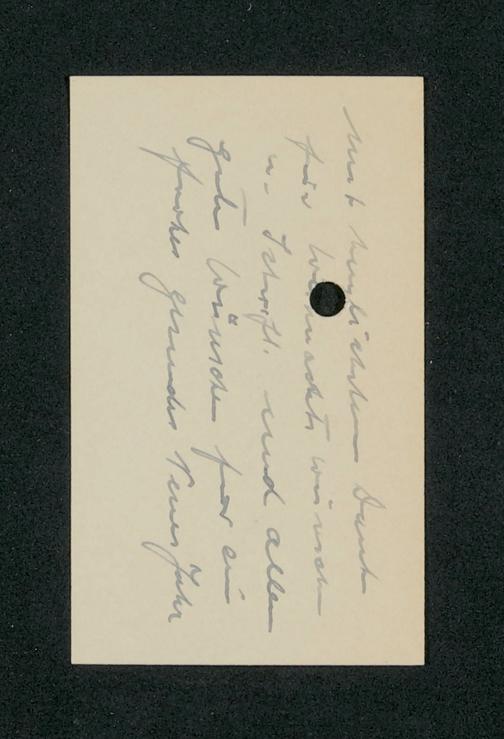 Mit herzlichstem Dank
für Weihnachtswünsche
u. Schrift. und allen
guten Wünschen für ein
frohes gesundes Neues Jahr